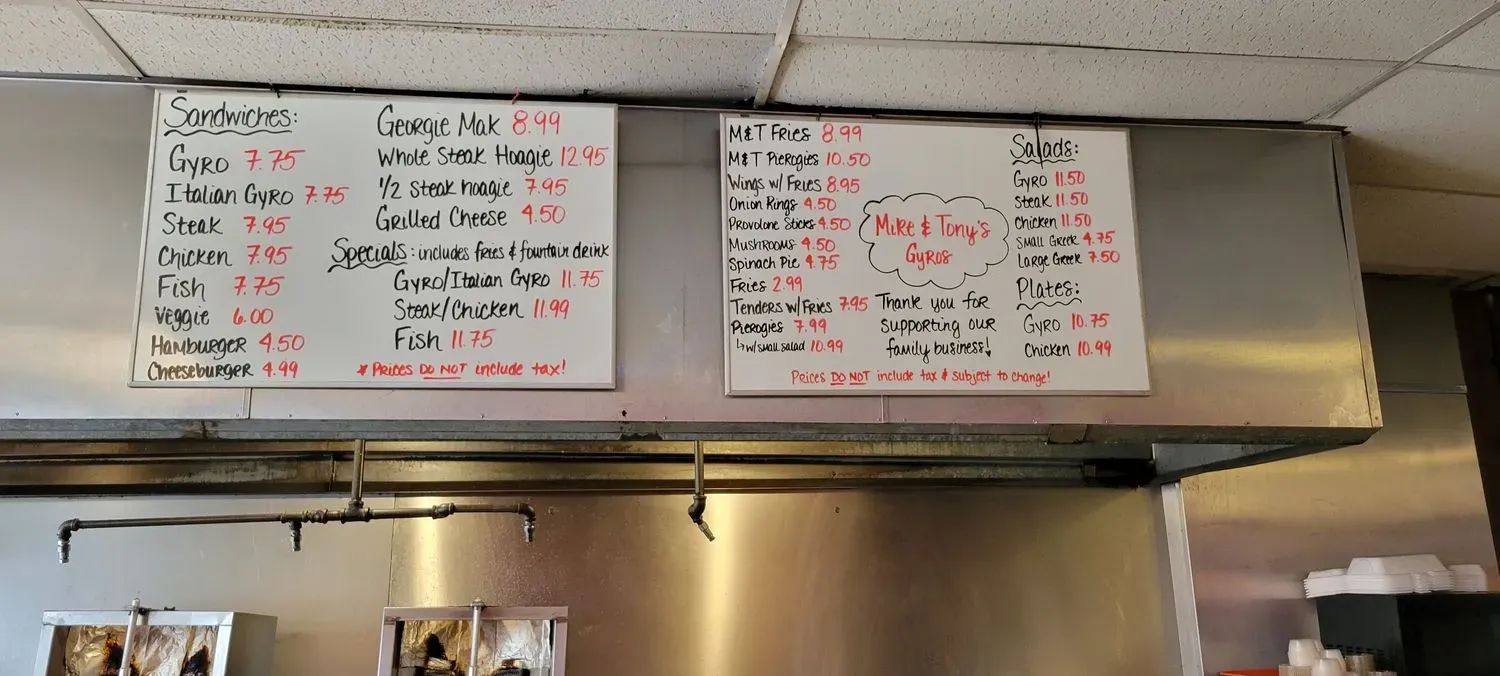 Sandwiches:
Gyro 7.75
Italian Gyro 7.75
Steak 7.95
Chicken 7.95
Fish 7.75
Veggie 6.00
Hamburger 4.50
Cheeseburger 4.99
Georgie Mak 8.99
Whole Steak Hoagie 12.95
1/2 steak hoagie 7.95
Grilled Cheese 4.50
Specials: includes fries & fountain drink
Gyro/Italian Gyro 11.75
Steak/Chicken 11.99
Fish 11.75
* Prices DO NOT include tax!
M&T Fries 8.99
M&T Pierogies 10.50
Wings w/ Fries 8.95
Onion Rings 4.50
Provolone Sticks 4.50
Mushrooms 4.50
Spinach Pie 4.75
Fries 2.99
Tenders w/ Fries 7.95
Pierogies 7.99
↳ w/ small salad 10.99
Mike & Tony's
Gyros
Thank you for
supporting our
family business!
Salads:
Gyro 11.50
Steak 11.50
Chicken 11.50
Small Greek 4.75
Large Greek 7.50
Plates:
Gyro 10.75
Chicken 10.99
Prices DO NOT include tax & subject to change!